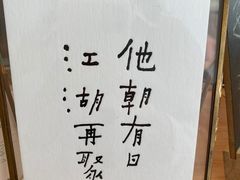 他朝有日
江湖再聚